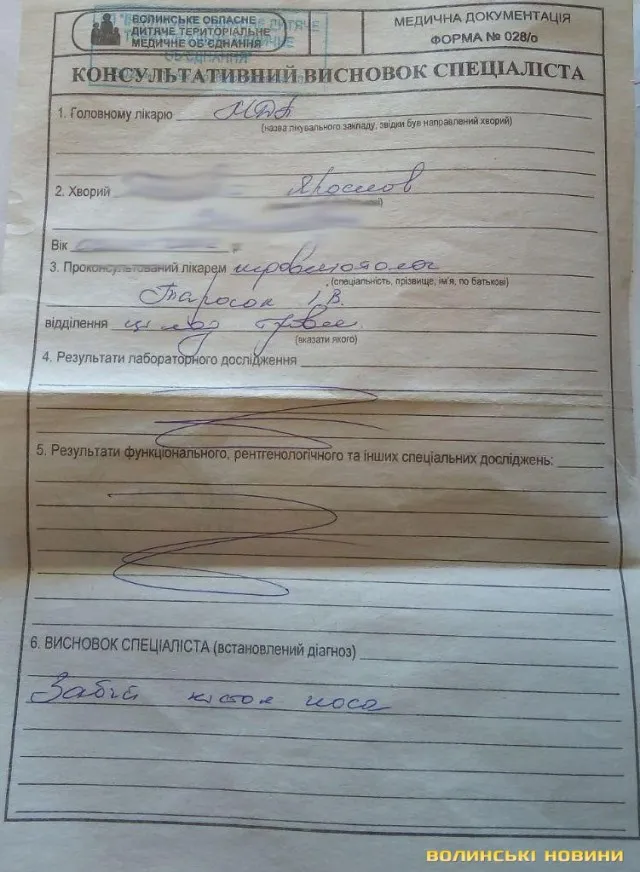 ВОЛИНСЬКЕ ОБЛАСНЕ
ДИТЯЧЕ ТЕРИТОРІАЛЬНЕ
МЕДИЧНЕ ОБ'ЄДНАННЯ
МЕДИЧНА ДОКУМЕНТАЦІЯ
ФОРМА № 028/о
КОНСУЛЬТАТИВНИЙ ВИСНОВОК СПЕЦІАЛІСТА
1. Головному лікарю
(назва лікувального закладу, звідки був направлений хворий)
2. Хворий Ярослав
Вік
3. Проконсультований лікарем
(спеціальність, прізвище, ім'я, по батькові)
Тарасюк І.В.
відділення
(вказати якого)
4. Результати лабораторного дослідження
5. Результати функціонального, рентгенологічного та інших спеціальних досліджень:
6. ВИСНОВОК СПЕЦІАЛІСТА (встановлений діагноз)
Забій кісток носа
ВОЛИНСЬКІ НОВИНИ